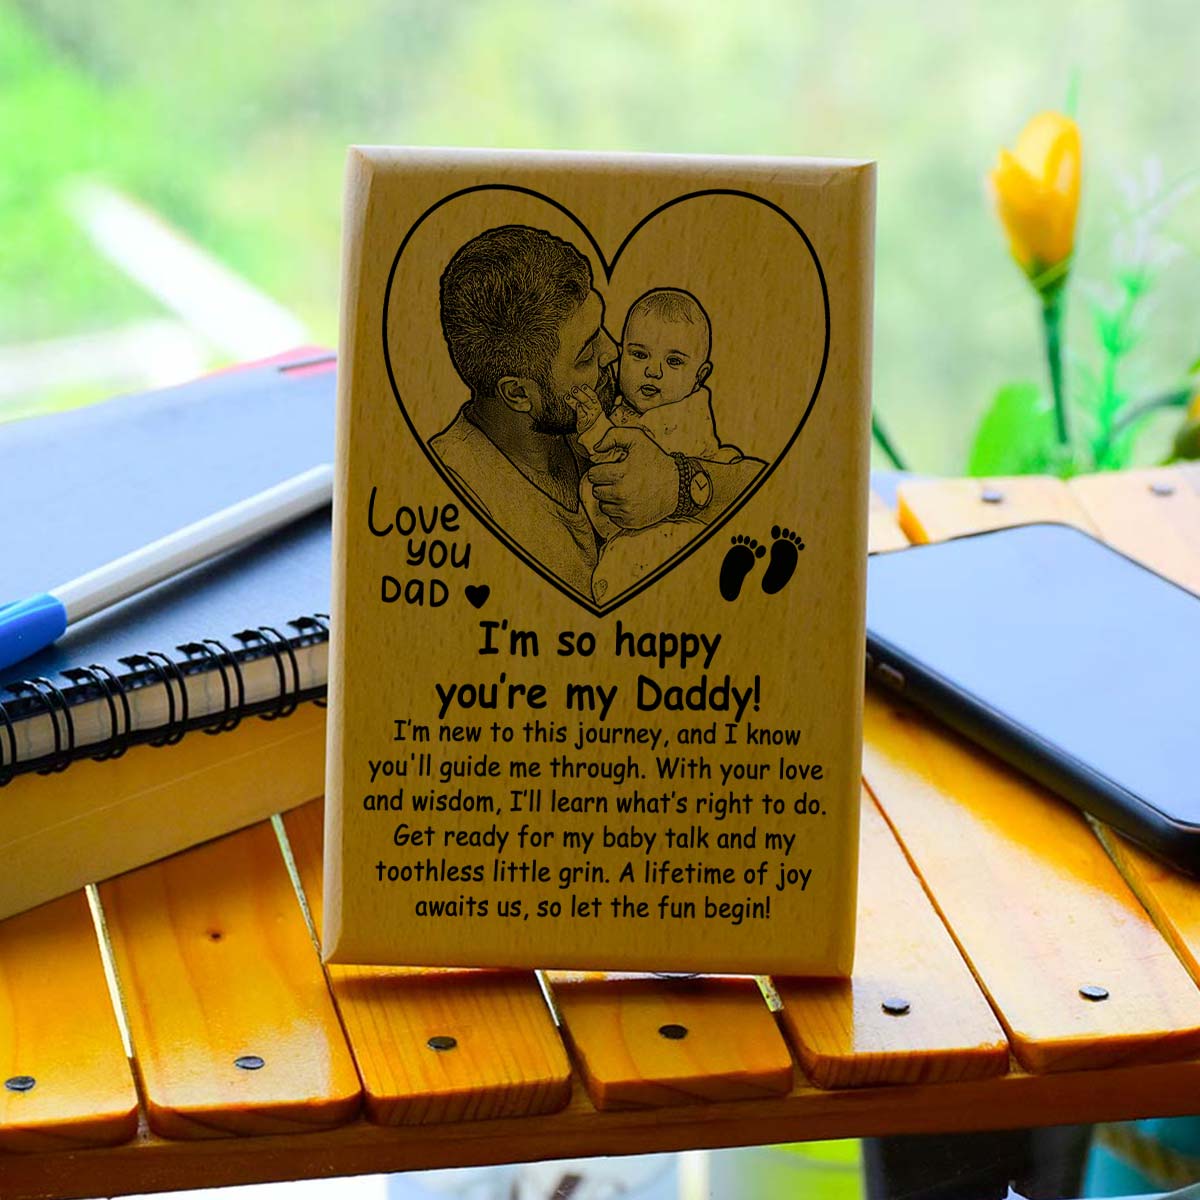 Love
you
DaD
I'm so happy
you're my Daddy!
I'm new to this journey, and I know
you'll guide me through. With your love
and wisdom, I'll learn what's right to do.
Get ready for my baby talk and my
toothless little grin. A lifetime of joy
awaits us, so let the fun begin!